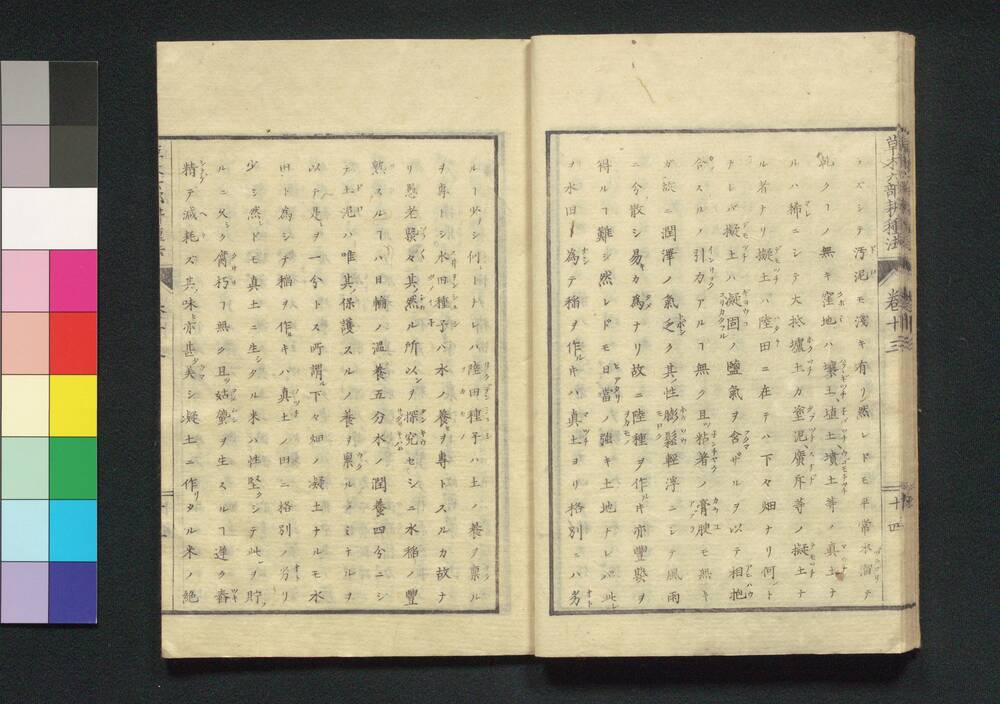 草木六部耕種法 卷十三 十四
ズシテ汚泥モ淺キ有リ然レドモ平常水溜テ
乾クーノ無キ窪地ハ壤土、埴土墳土等ノ真土ナ
ルハ稀ニシテ大抵壚土カ塗泥、廣斥等ノ擬土ナ
ル者ナリ擬土ハ陸田ニ在テハ下々畑ナリ何ント
ナレバ擬土ハ凝固ノ鹽氣ヲ含ザルヲ以テ相抱
合スルノ引力アルー無ク且ツ粘著ノ膏腴モ無キ
ガ故ニ潤澤ノ氣乏ク其ノ性膨鬆輕浮ニシテ風雨
ニ分散シ易キカ為ナリ故ニ陸種ヲ作ルキ亦豐熟ヲ
得ルー難シ然レドモ日當ノ強キ土地ナレバ此レ
ヲ水田ト為テ稲ヲ作ルキハ真土ヨリ格別ニハ劣
ルー少シ何ントナレバ陸田種子ハ土ノ養ヲ稟ル
ヲ專トシ水田種子ハ水ノ養ヲ專トスルカ故ナ
リ愚老緊々其ノ然ル所以ンヲ探究セシニ水稲ノ豐
熟スルーハ日輪ノ温養五分水ノ潤養四分ニシ
テ土泥ハ唯其ノ保護スルノ養ヲ稟ルノミナルヲ
以テ是レヲ一分トス所謂ル下々畑ノ凝土ナルモ水
田ト為シテ稲ヲ作ルキハ真土ノ田ニ格別ノ劣リ
少シ然レドモ真土ニ生シタル米ハ性堅クシテ此レヲ貯
ルニ久シク腐朽ー無ク且ツ蛄䗐ヲ生スルー遲ク舂
精テ減耗ズ其ノ味ヒ亦甚タ美シ凝土ニ作リタル米ノ絶